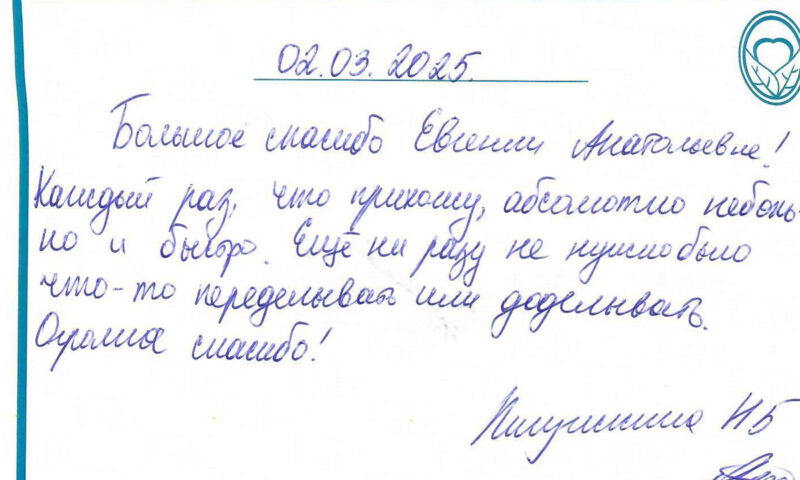 02.03.2025.
Большое спасибо Евгении Анатольевне!
Каждый раз, что прихожу, абсолютно неболь-
но и быстро. Ещё ни разу не нужно было
что-то переделывать или доделывать.
Огромное спасибо!
НБ